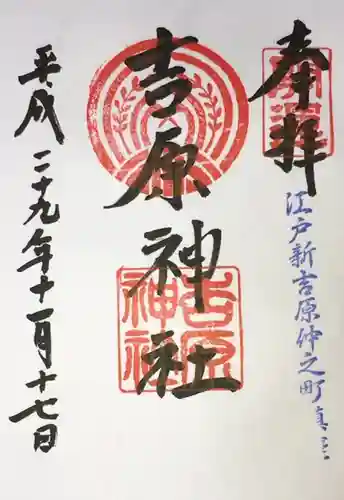 奉拝
開運
江戸新吉原仲之町真
吉原神社
吉原神社
平成二十九年十一月十七日